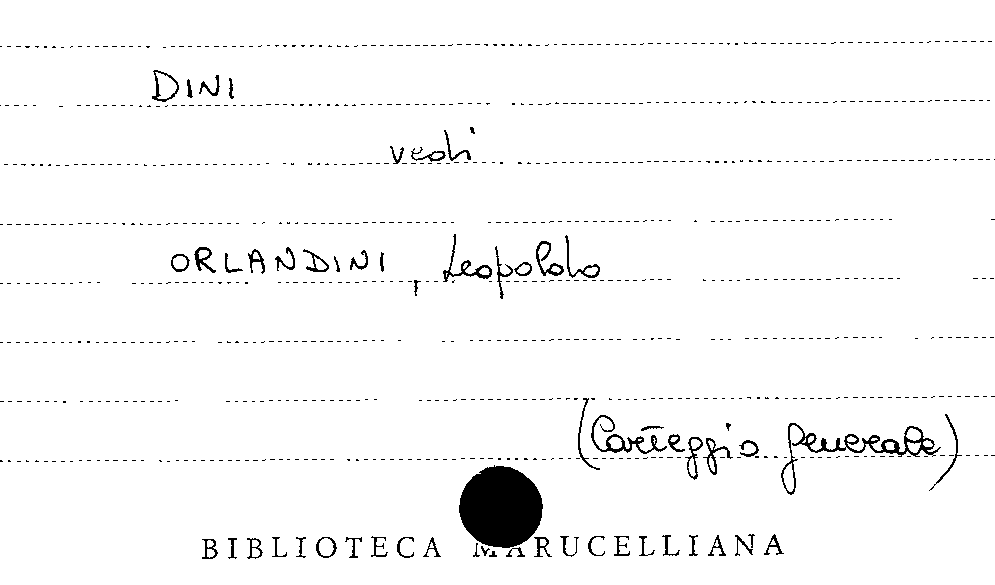 DINI
vedi
ORLANDINI, Leopoldo
(Carteggio generale)
BIBLIOTECA MARUCELLIANA